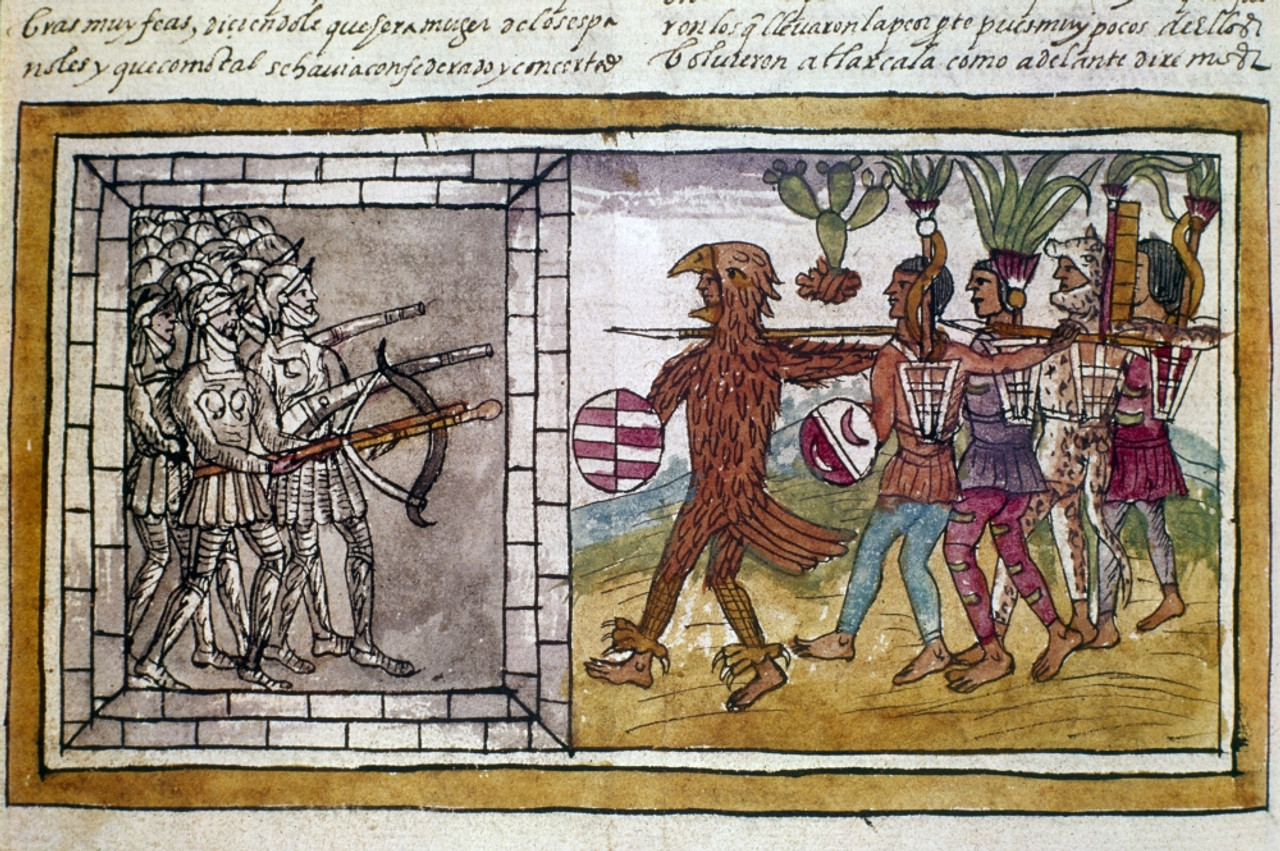 bras muy feas, diciendole que sera muger de los espa
ñoles y que como tal se havia confederado y concertado
ron los q̃ lleuaron la peor pte pues muy pocos de ellos
boluieron a tlaxcala como adelante diremos